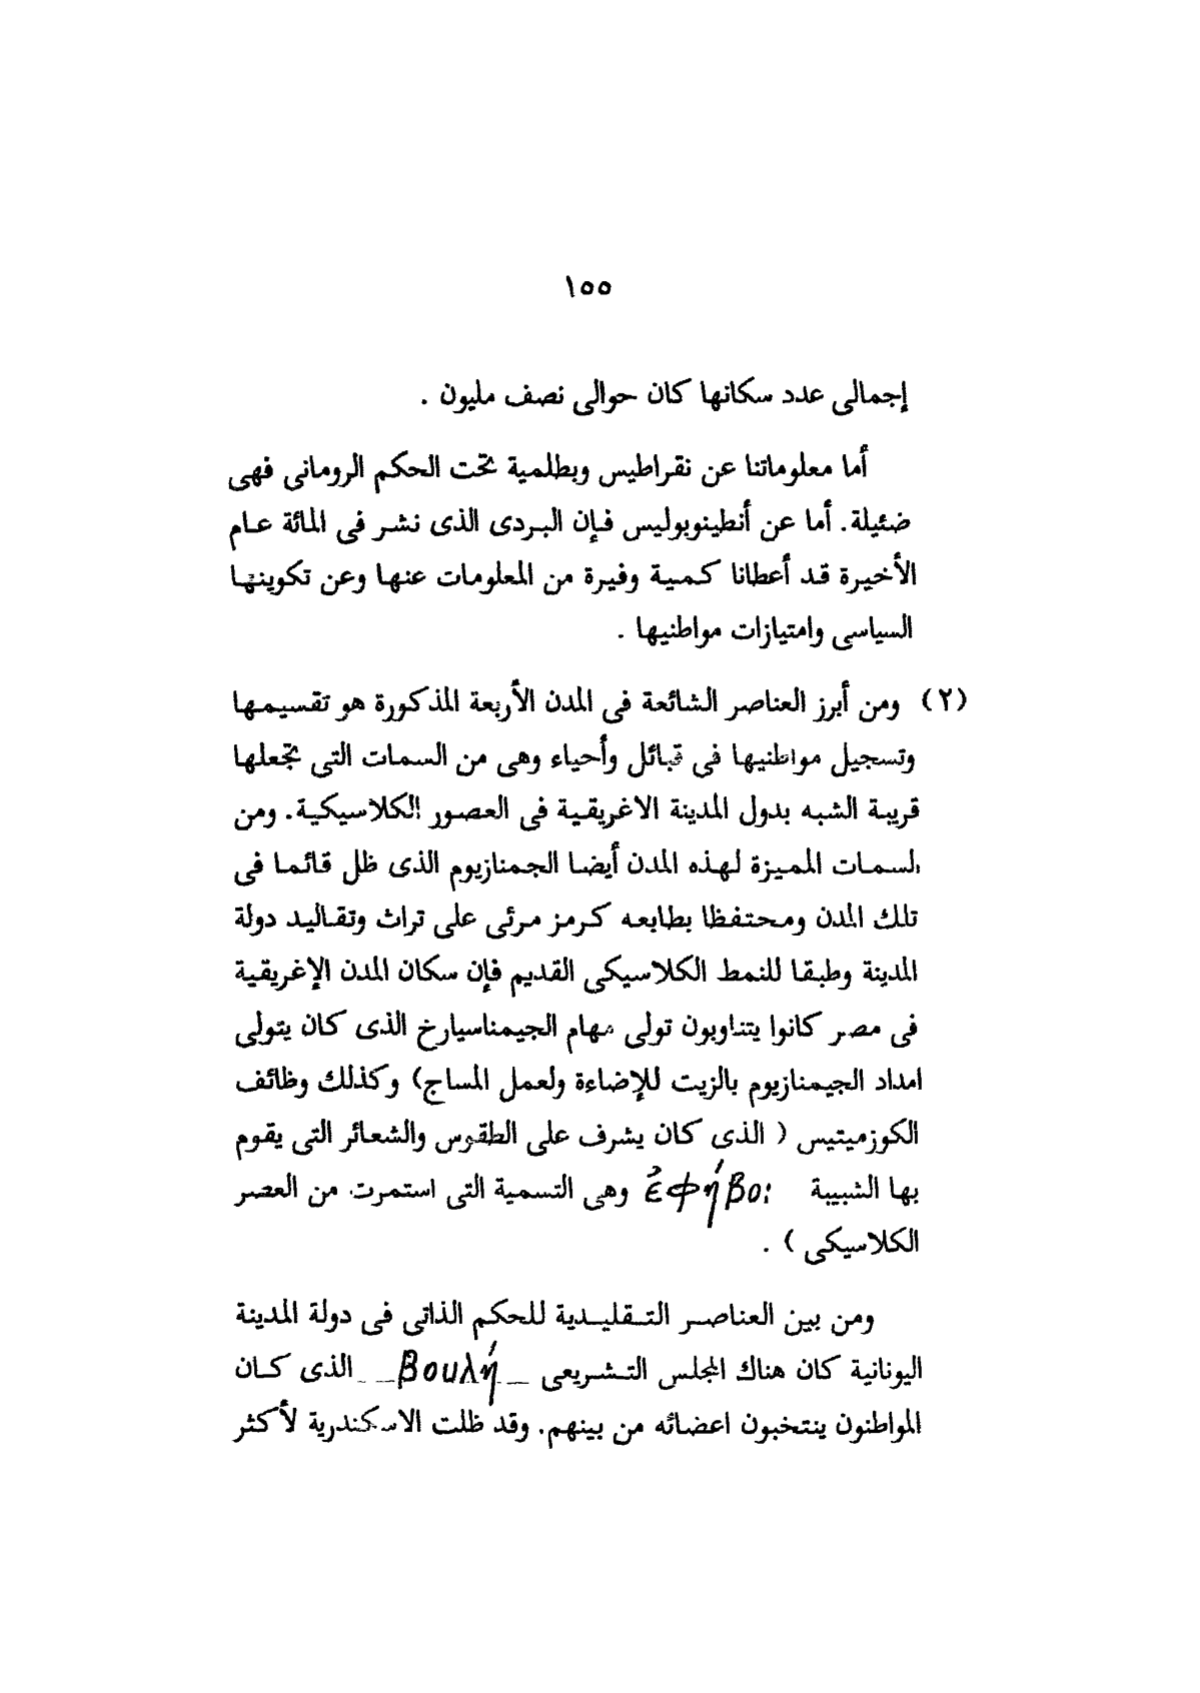 ١٥٥
إجمالى عدد سكانها كان حوالى نصف مليون .
أما معلوماتنا عن نقراطيس وبطلمية تحت الحكم الرومانى فهى
ضئيلة. أما عن أنطينوبوليس فإن البردى الذى نشر فى المائة عام
الأخيرة قد أعطانا كمية وفيرة من المعلومات عنها وعن تكوينها
السياسى وامتيازات مواطنيها .
(٢) ومن أبرز العناصر الشائعة فى المدن الأربعة المذكورة هو تقسيمها
وتسجيل مواطنيها فى قبائل وأحياء وهى من السمات التى تجعلها
قريبة الشبه بدول المدينة الاغريقية فى العصور الكلاسيكية. ومن
لسمات المميزة لهذه المدن أيضا الجمنازيوم الذى ظل قائما فى
تلك المدن ومحتفظا بطابعه كرمز مرئى على تراث وتقاليد دولة
المدينة وطبقا للنمط الكلاسيكى القديم فإن سكان المدن الإغريقية
فى مصر كانوا يتناوبون تولى مهام الجيمناسيارخ الذى كان يتولى
امداد الجيمنازيوم بالزيت للإضاءة ولعمل المساج) وكذلك وظائف
الكوزميتيس ( الذى كان يشرف على الطقوس والشعائر التى يقوم
بها الشبيبة ἐφήβοι وهى التسمية التى استمرت من العصر
الكلاسيكى ) .
ومن بين العناصر التقليدية للحكم الذاتى فى دولة المدينة
اليونانية كان هناك المجلس التشريعى _ βουλή _ الذى كان
المواطنون ينتخبون اعضائه من بينهم. وقد ظلت الاسكندرية لأكثر